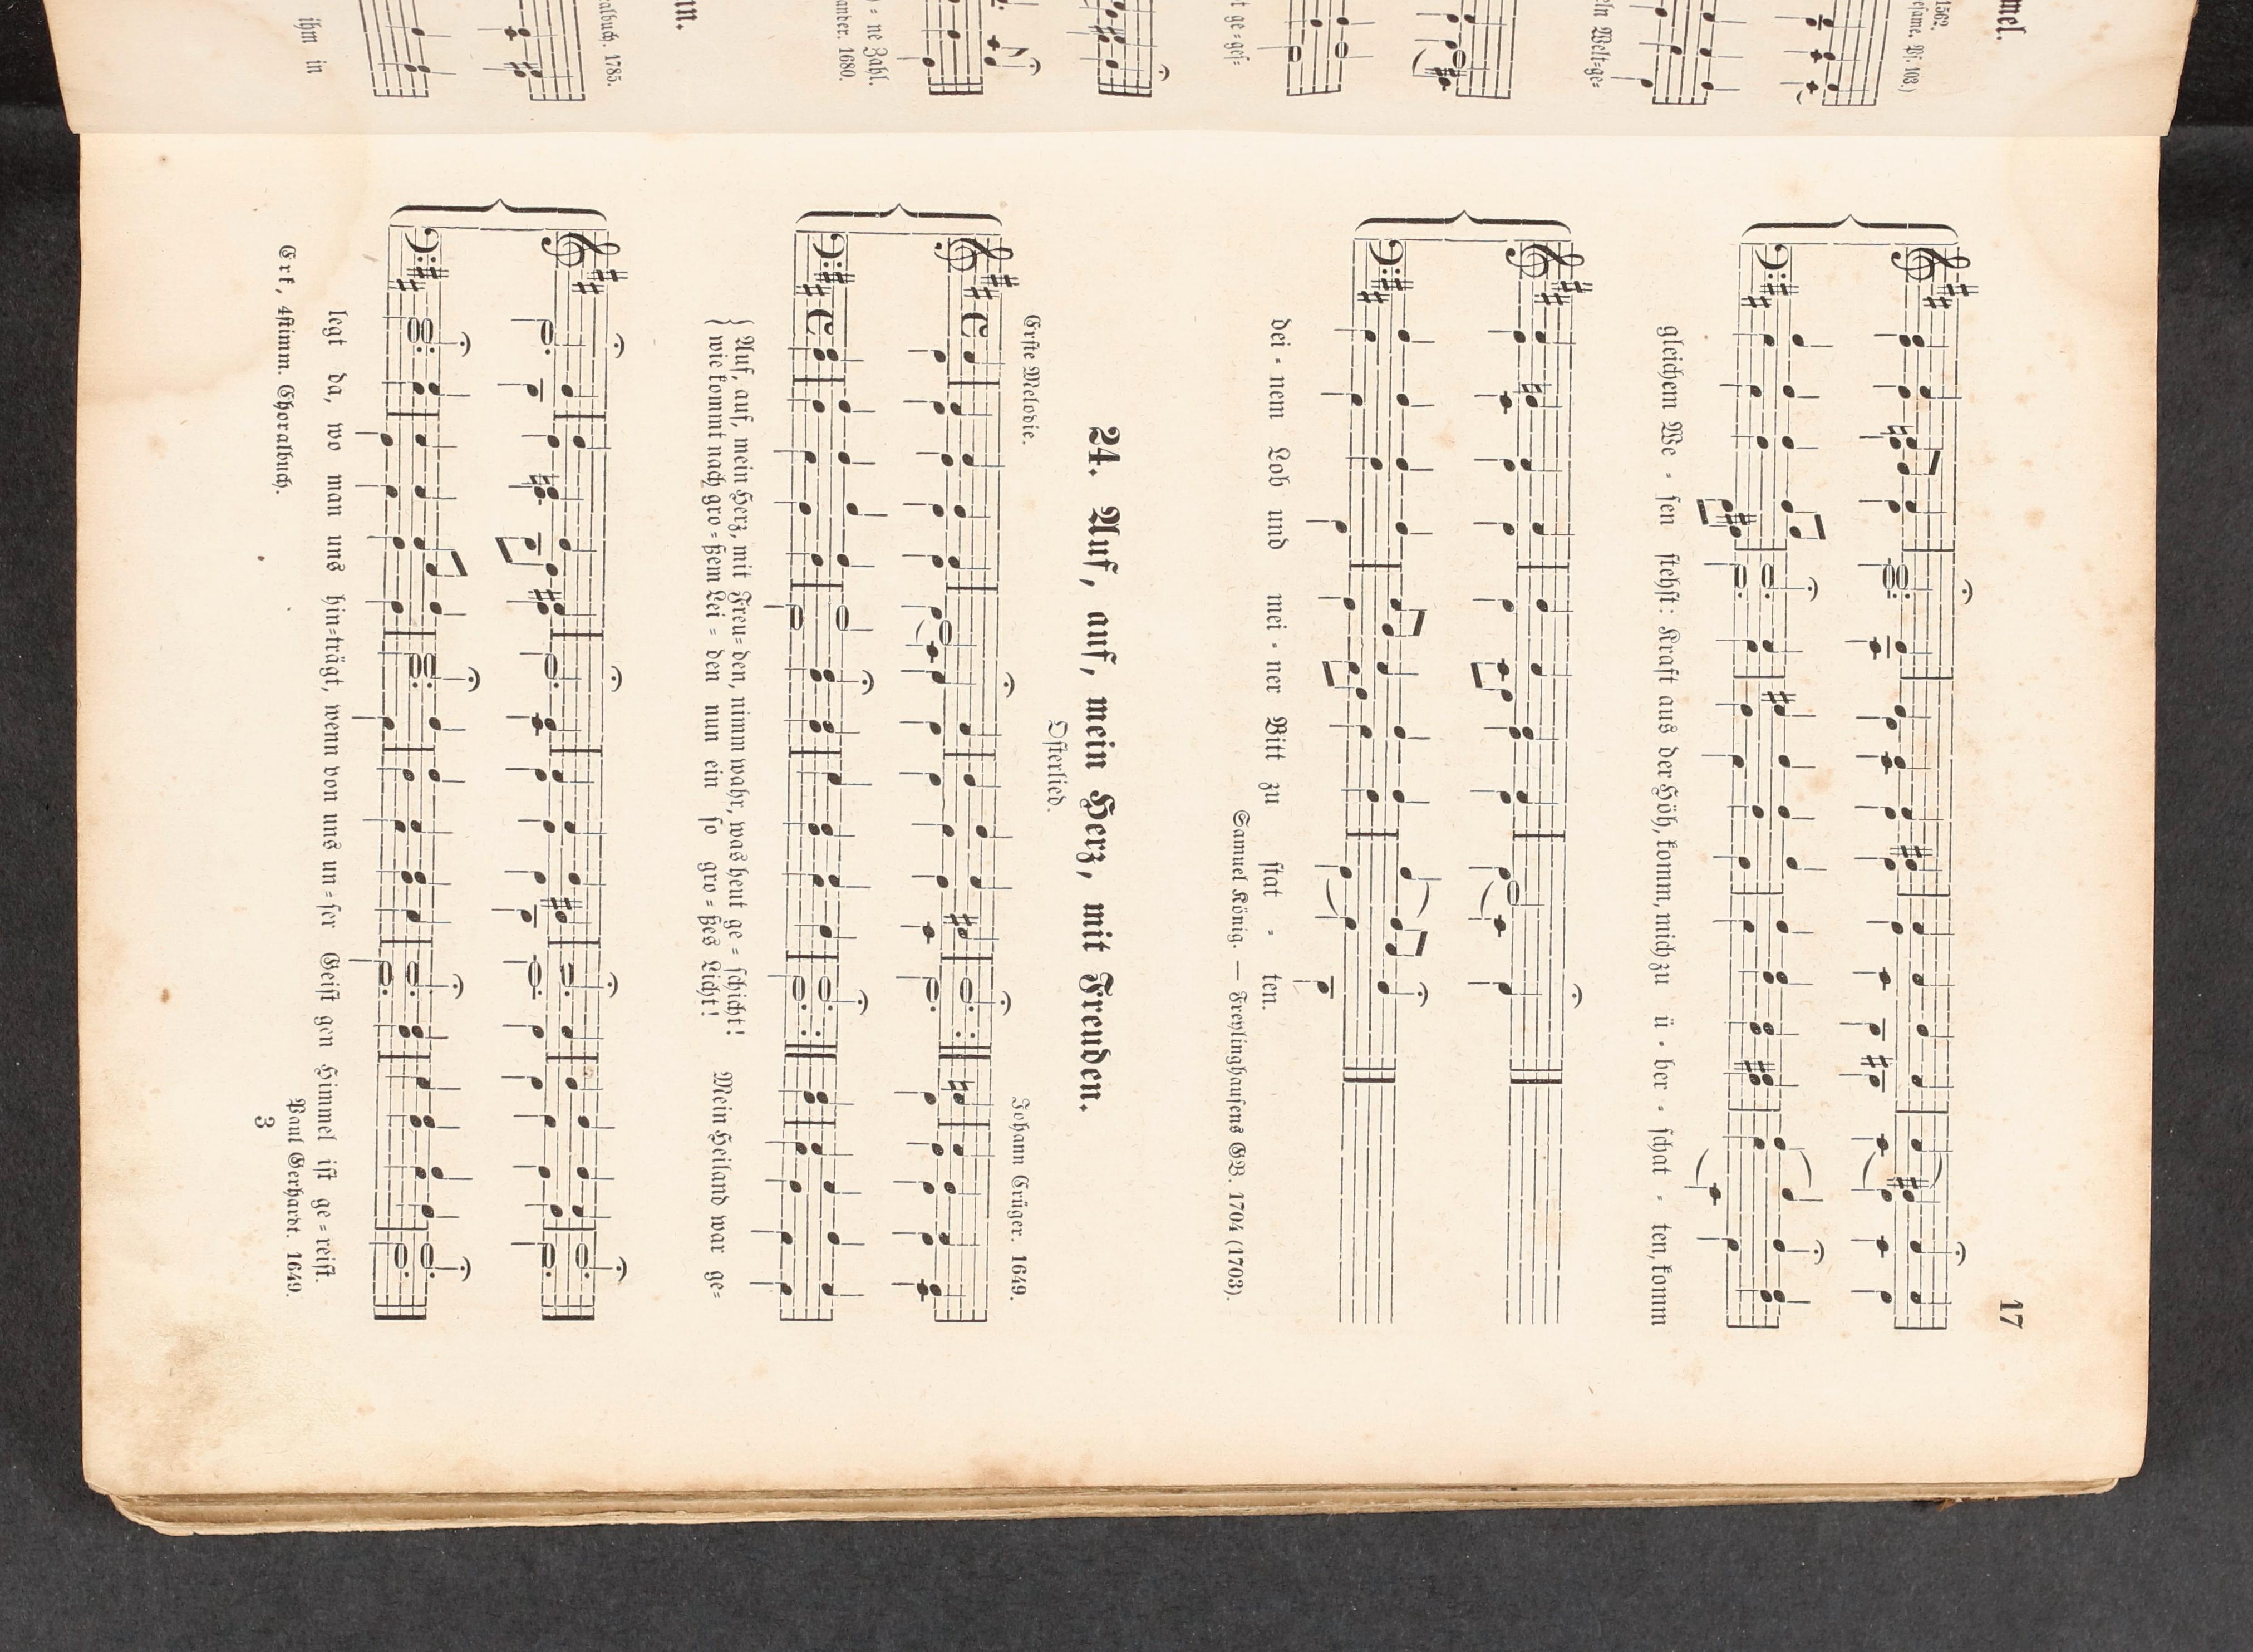 17
gleichem We - sen stehst: Kraft aus der Höh, komm, mich zu ü - ber - schat - ten, komm
dei - nem Lob und mei - ner Bitt zu stat - ten.
Samuel König. — Freylinghausens GB. 1704 (1703).
24. Auf, auf, mein Herz, mit Freuden.
Osterlied.
Erste Melodie.
Johann Crüger. 1649.
Auf, auf, mein Herz, mit Freu - den, nimm wahr, was heut ge - schicht!
wie kommt nach gro - ßem Lei - den nun ein so gro - ßes Licht! Mein Heiland war ge-
legt da, wo man uns hin-trägt, wenn von uns un - ser Geist gen Himmel ist ge - reist.
Paul Gerhardt. 1649.
Erk, 4stimm. Choralbuch.
3
mel.
1562.
Ps. 103.)
eln Welt=ge=
t ge=geß=
) = ne Zahl.
ander. 1680.
nn.
albuch. 1785.
ihm in